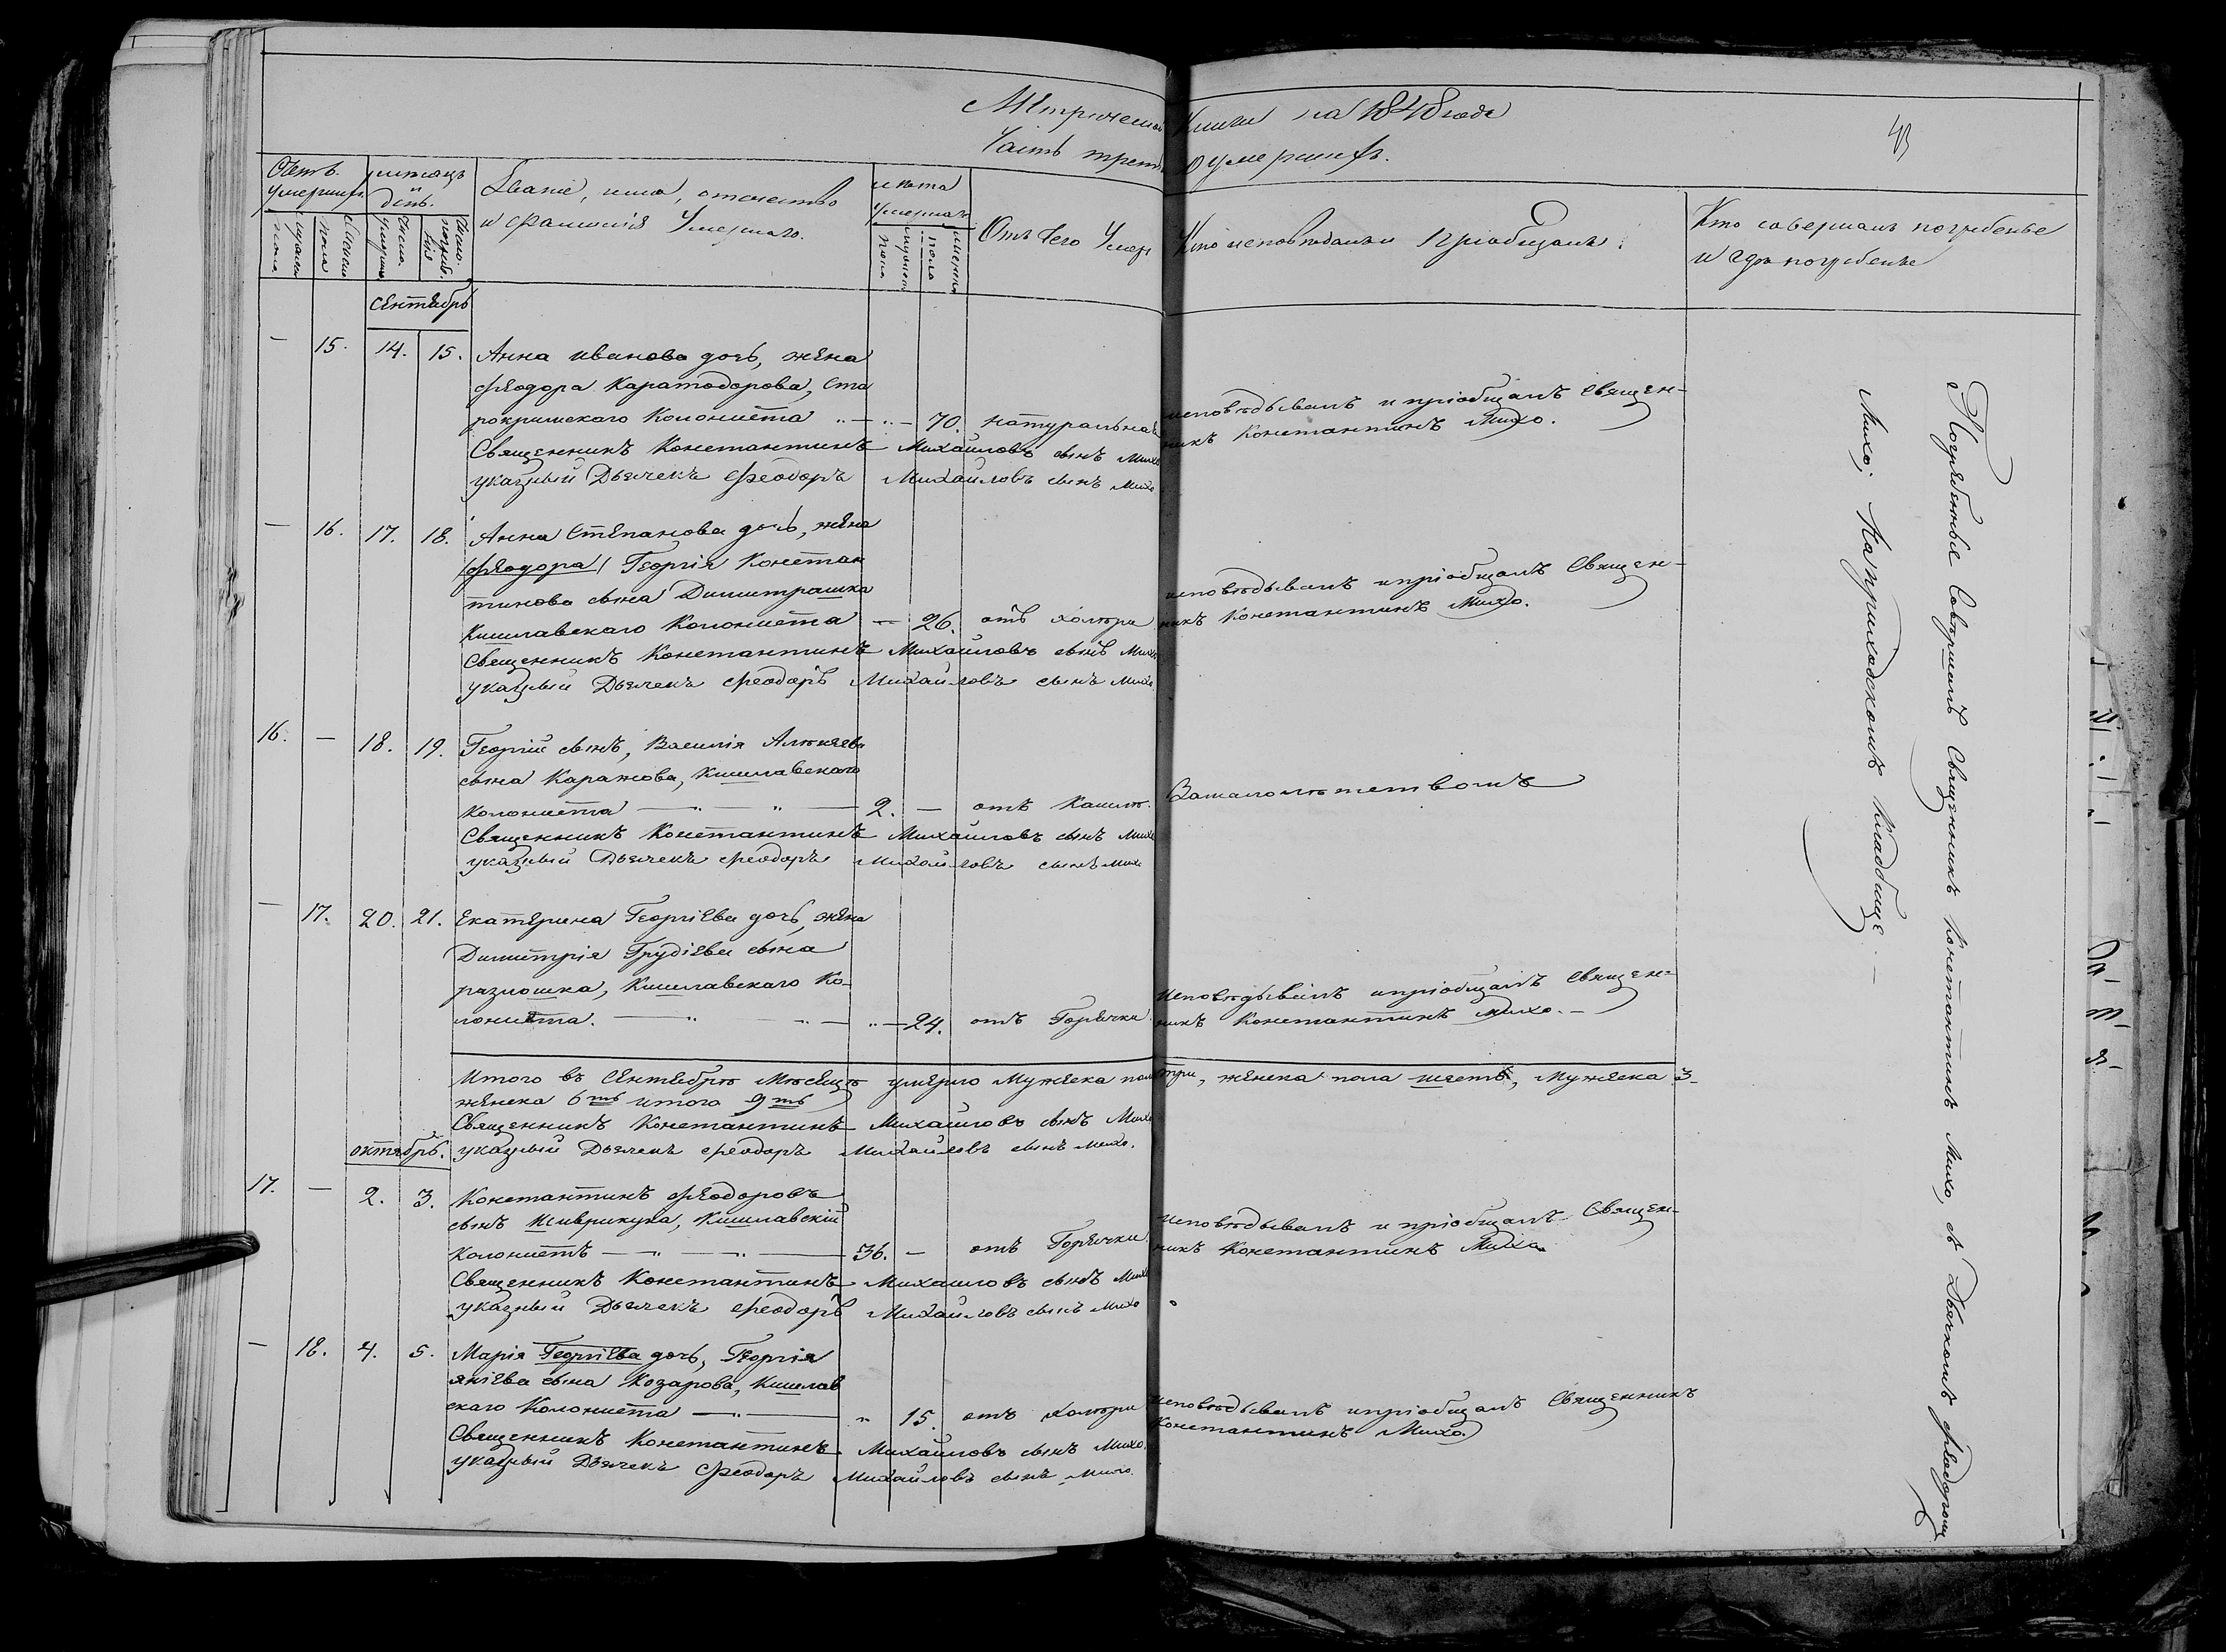 Метрической Книги на 1848 годъ
Часть третья о умершихъ.
43
Счетъ умершихъ.
мѣсяцъ и день.
Званіе, имя, отечество и фамилія Умершаго.
лѣта Умершаго
Отъ чего Умеръ
Кто исповѣдалъ и пріобщалъ.
Кто совершалъ погребенье и гдѣ погребены
мужеска пола
женска пола
число. умертія
число. погребенія
мужеска пола
женска пола
сентябрь
— 15. 14. 15. Анна иванова дочь, жена
Феодора Каратодорова, Ста
рокримскаго Колониста „ — „ — 70. натуральная исповѣдывалъ и пріобщалъ Священ-
никъ Константинъ Михо.
Священникъ Константинъ Михайловъ сынъ Михо
указный Дьячекъ Феодоръ Михайловъ сынъ Михо
— 16. 17. 18. Анна Степанова дочь, жена
/Феодора/ Георгія Констан
тинова сына Димитрашка
Кишлавскаго Колониста — 26. отъ холѣри исповѣдывалъ и пріобщалъ Священ-
никъ Константинъ Михо.
Священникъ Константинъ Михайловъ сынъ Михо
указный Дьячекъ Феодоръ Михайловъ сынъ Михо.
16. — 18. 19. Георгій сынъ, Василія Алѣксѣева
сына Каражова, Кишлавскаго
колониста — „ — „ — 2. — отъ Кашлѣ. Замалолѣтствомъ
Священникъ Константинъ Михайловъ сынъ Михо
указный Дьячекъ Феодоръ Михайловъ сынъ Михо
— 17. 20. 21. Екатерина Георгіева дочь, жена
Димитрія Грудіева сына
разношка, Кишлавскаго Ко-
лониста. — „ — „ — „ — 24. отъ Горячки исповѣдывалъ и пріобщалъ Священ-
никъ Константинъ Михо. —
Итого въ Сентябрѣ Мѣсяцѣ умерло Мужеска пола три, женска пола шесть, Мужеска 3-
женска 6ть итого 9ть
Священникъ Константинъ Михайловъ сынъ Михо
указный Дьячекъ Феодоръ Михайловъ сынъ Михо.
октябрь.
17. — 2. 3. Константинъ Феодоровъ
сынъ Шиврикука, Кишлавскій
колонистъ — „ — „ — 36. — отъ Горячки исповѣдывалъ и пріобщалъ Священ-
никъ Константинъ Михо.
Священникъ Константинъ Михайловъ сынъ Михо
указный Дьячекъ Феодоръ Михайловъ сынъ Михо
— 18. 4. 5. Марія Георгіева дочь, Георгія
яніева сына Козарова, Кишлав
скаго Колониста — „ — „ 15. отъ холѣри исповѣдывалъ и пріобщалъ Священникъ
Константинъ Михо.
Священникъ Константинъ Михайловъ сынъ Михо.
указный Дьячекъ Феодоръ Михайловъ сынъ Михо.
Погребенье Совершилъ Священникъ Константинъ Михо, съ Дьячкомъ Феодоромъ
Михо; На приходскомъ Кладбище. —